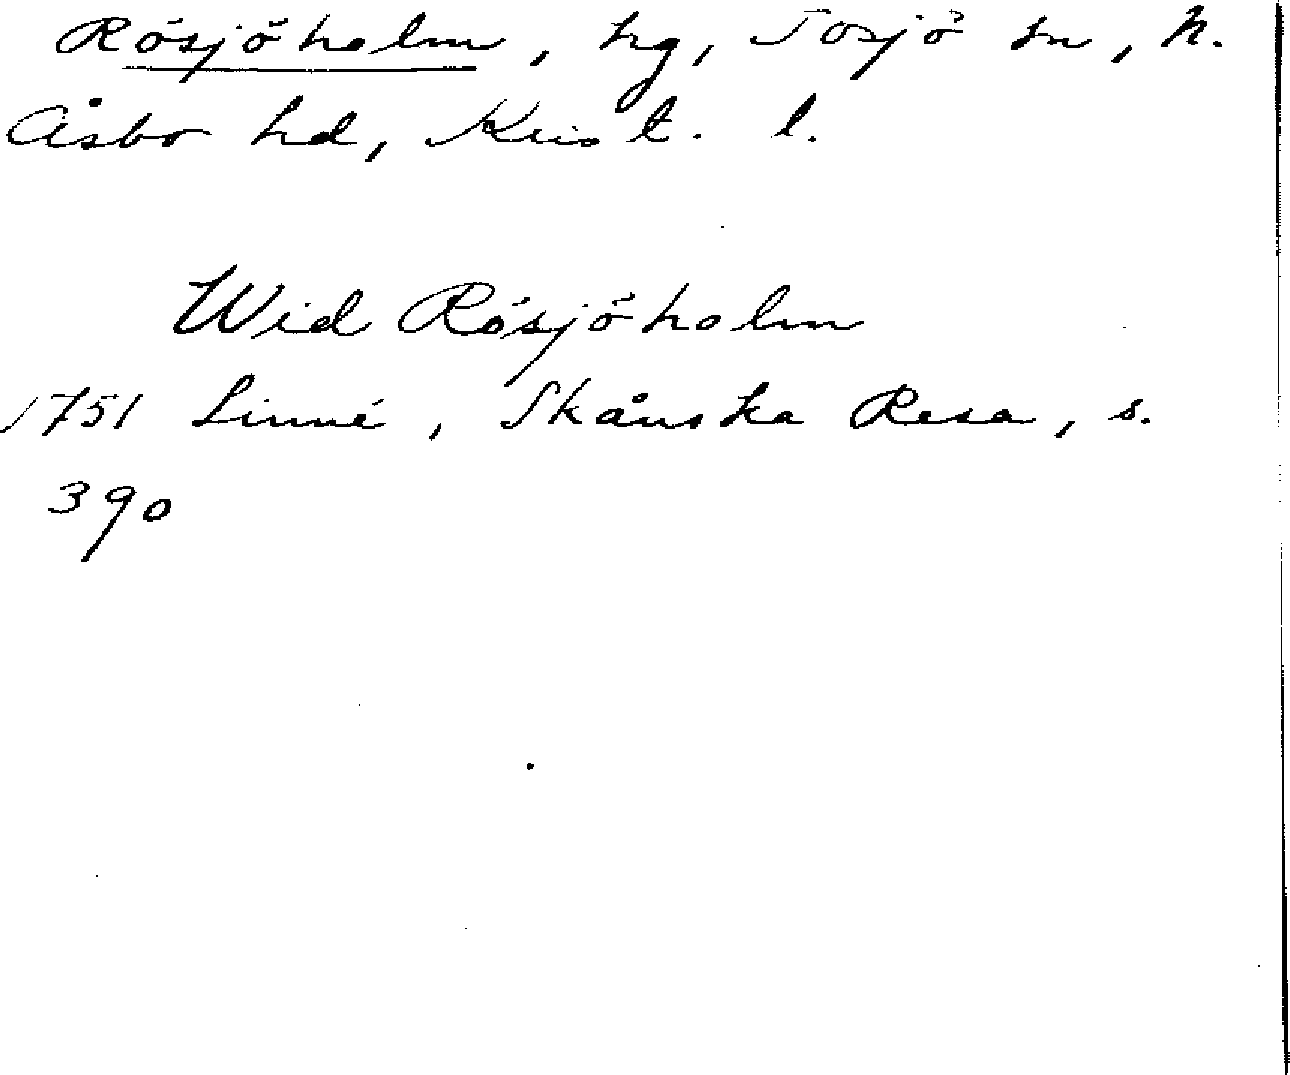 Rösjöholm, hg, Tosjö sn, N.
Åsbo hd, Krist. l.
Wid Rösjöholm
1751 Linné, Skånska Resa, s.
390